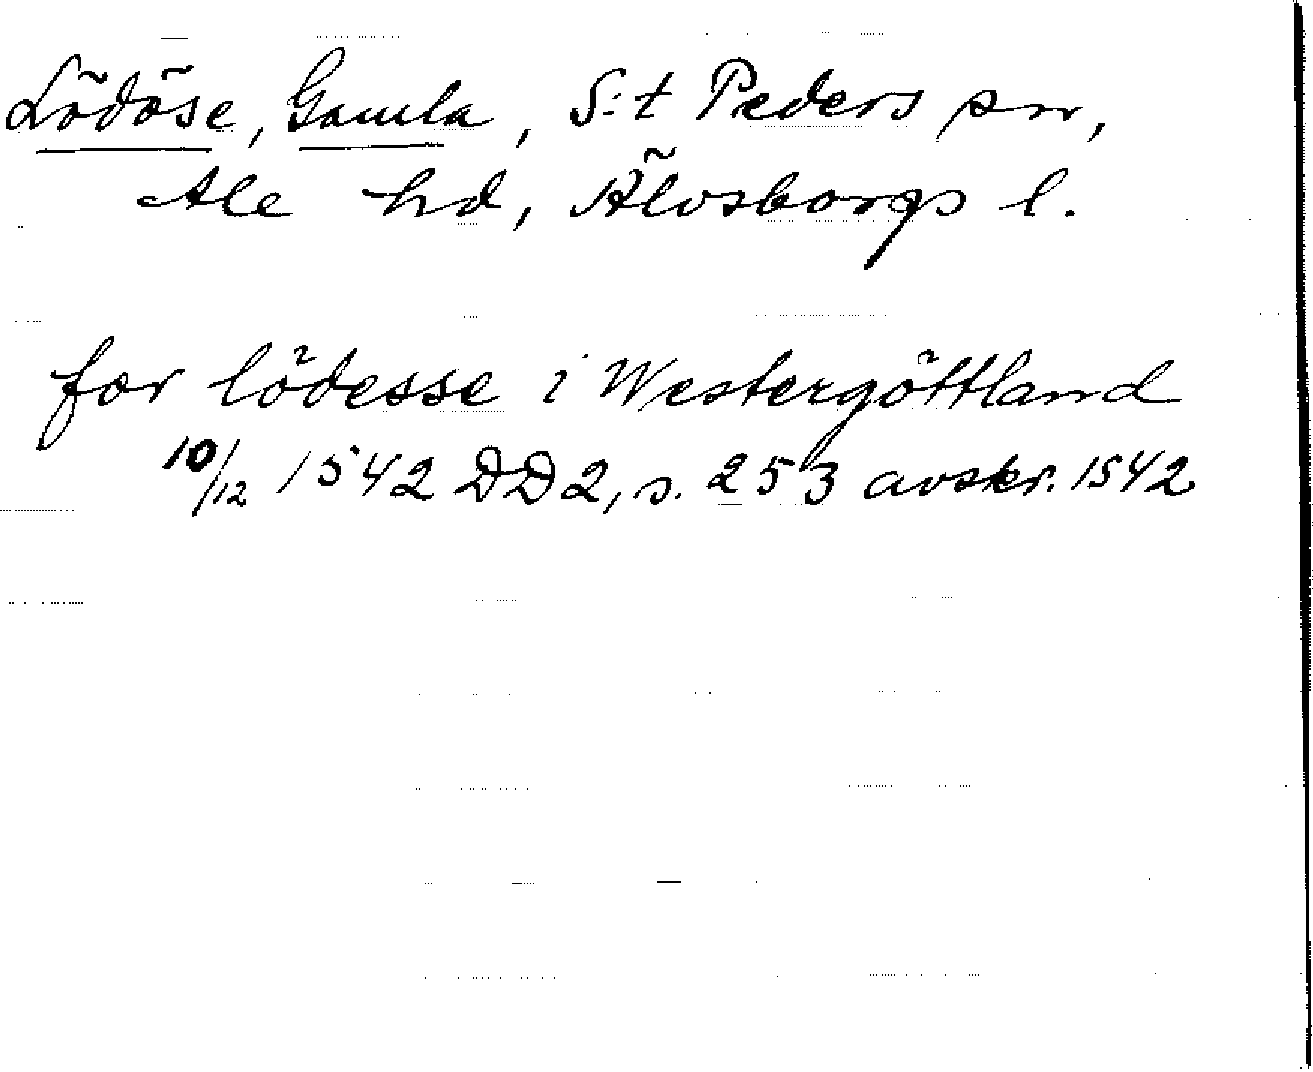 Lödöse, Gamla, S:t Peders sn,
Ale hd, Älvsborgs l.
for lödesse i Westergöttland
10/12 1542 DD2, s. 253 avskr. 1542